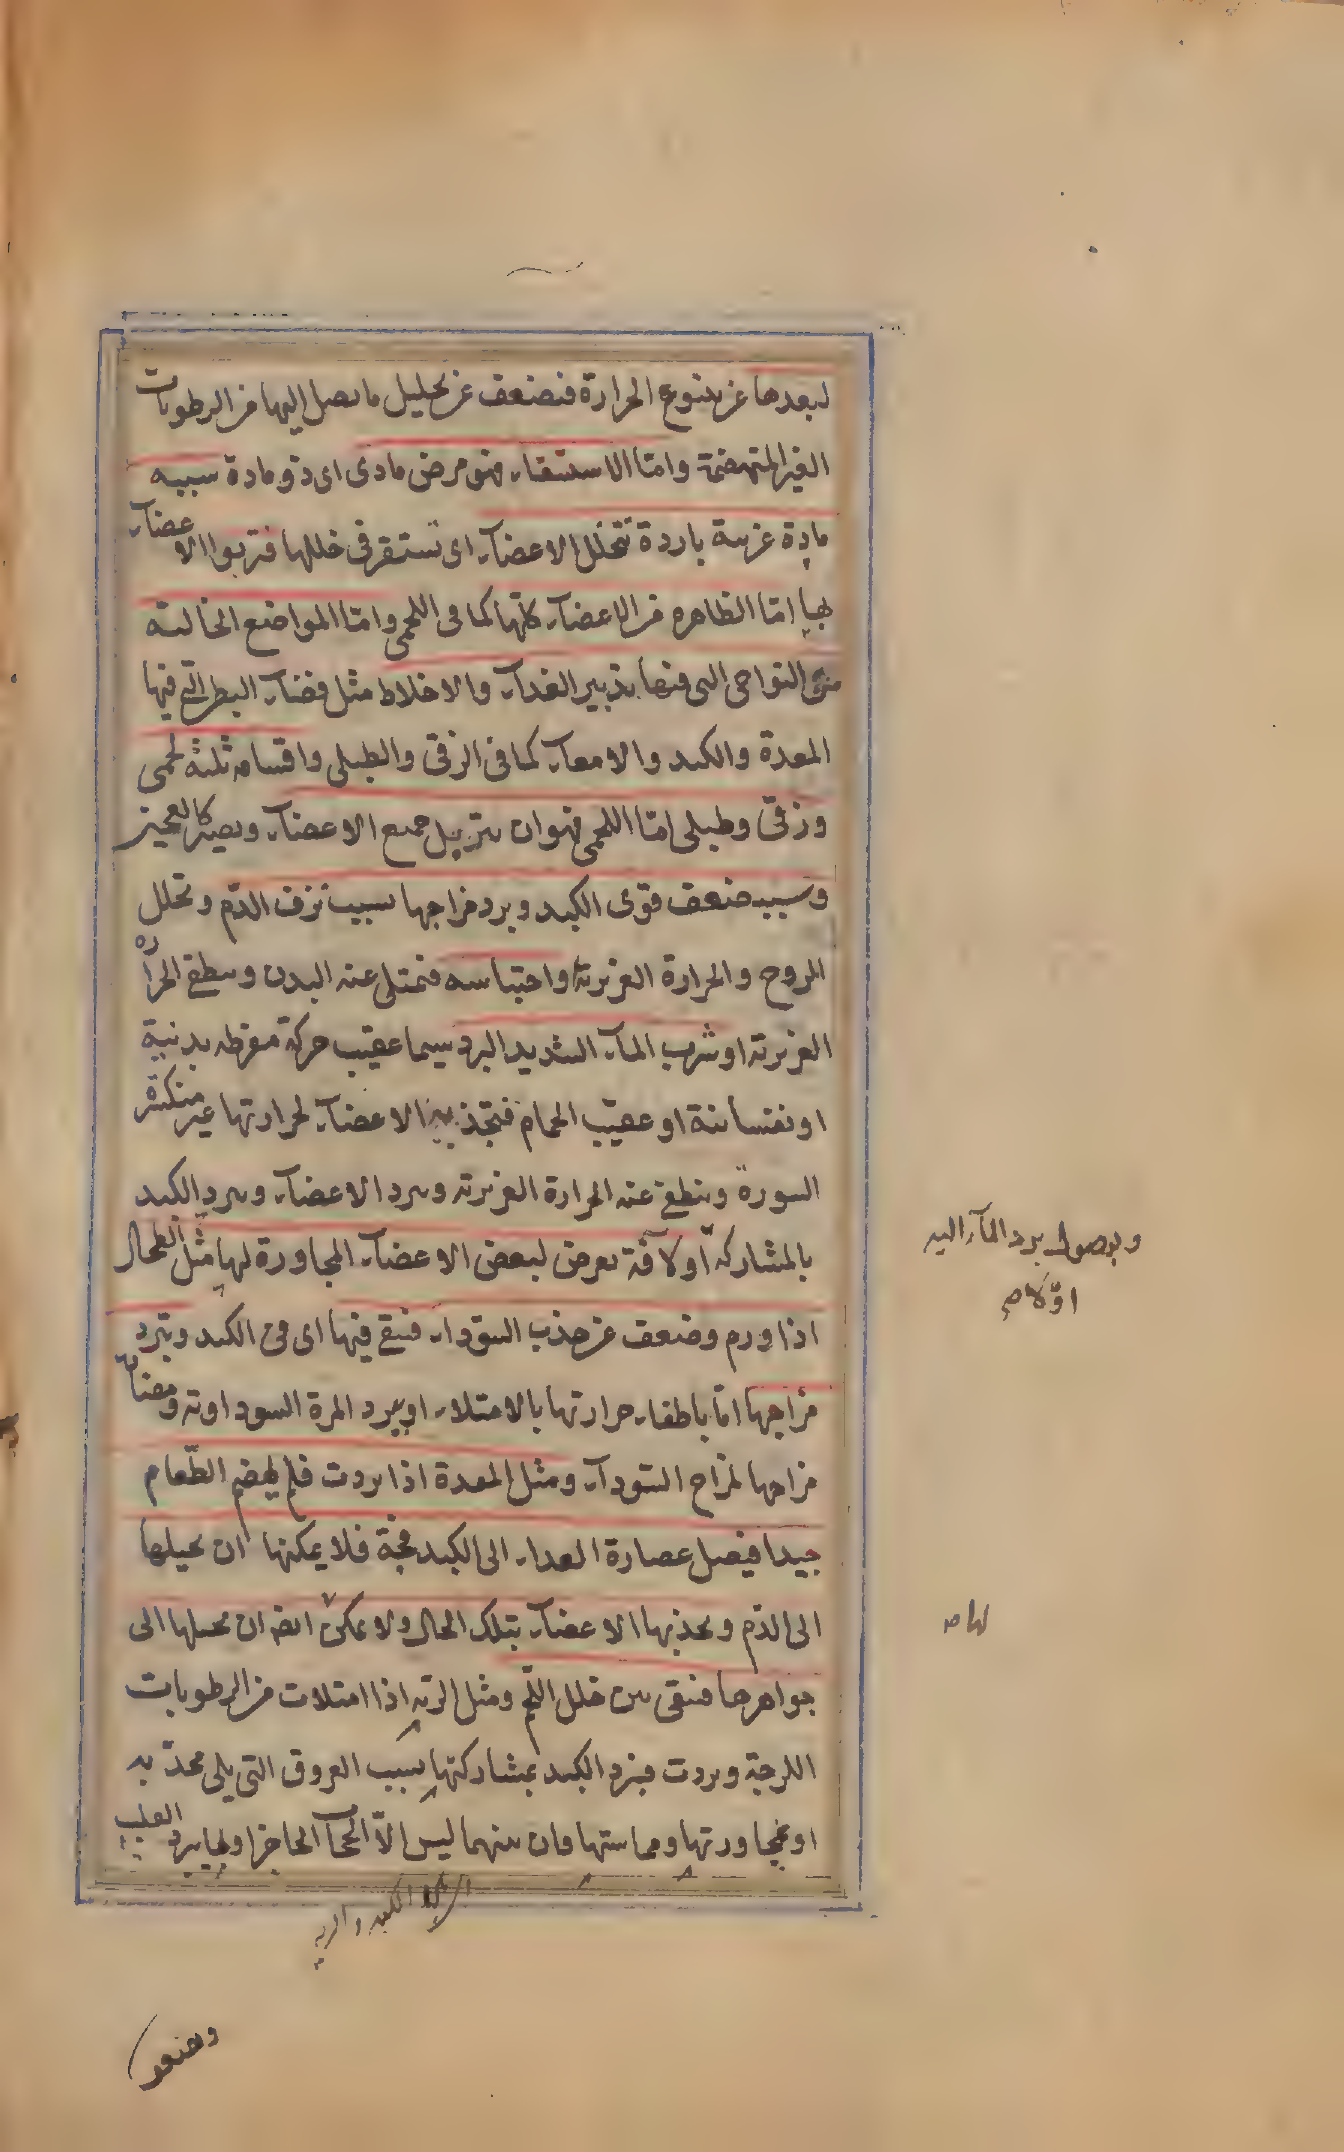 لبعدها عن ينبوع الحرارة فتضعف عن تحليل ما يصل اليها من الرطوبات
الغير المنهضمة واما الاستسقاء فهو مرض مادى اى ذو مادة سببه
مادة غريبة باردة تتخلل الاعضاء اى تستقر فى خللها فتربوا الاعضاء
بها اما الظاهره من الاعضاء كلها كما فى اللحمى واما المواضع الخالية
من النواحى التى فيها تدبير الغداء والاخلاط مثل فضاء البطن التى فيها
المعدة والكبد والامعاء كما فى الزقى والطبلى واقسامه ثلثة لحمى
وزقى وطبلى اما اللحمى فهو ان يترهل جميع الاعضاء ويصير كالعجين
وسببه ضعف قوى الكبد وبرد مزاجها بسبب نزف الدم وتحلل
الروح والحرارة الغريزية واحتباسه فتمتلى عنه البدن وينطفى الحراره
الغريزية او شرب الماء الشديد البرد سيما عقيب حركة مفرطه بدنية
او نفسانية او عقيب الحمام فتجذبه الاعضاء لحرارتها غير منكسرة
السورة وينطفى عنه الحرارة الغريزية ويبرد الاعضاء ويبرد الكبد
بالمشاركة او لآفة يعرض لبعض الاعضاء المجاورة لها مثل الطحال
اذا ورم وضعف عن جذب السوداء فتبقى فيها اى فى الكبد ويبرد
مزاجها اما باطفاء حرارتها بالامتلاء او ببرد المرة السوداوية ومضادة
مزاجها لمزاج السوداء ومثل المعدة اذا بردت فلم يهضم الطعام
جيدا فيصل عصارة الغداء الى الكبد فجة فلا يمكنها ان يحيلها
الى الدم ويجذبها الاعضاء بتلك الحال ولا يمكن ايضا ان يحيلها الى
جواهرها فتبقى بين خلل اللحم ومثل الرية اذا امتلات من الرطوبات
اللزجة وبردت فيبرد الكبد بمشاركتها بسبب العروق التى يلى محدبه
او بمجاورتها ومماستها فان بينهما ليس الا الحجاب الحاجز او بها يبرد القلب
وبوصول برد الماء اليه
اولا صح
لها ص
الكبد والرية
ويضعف